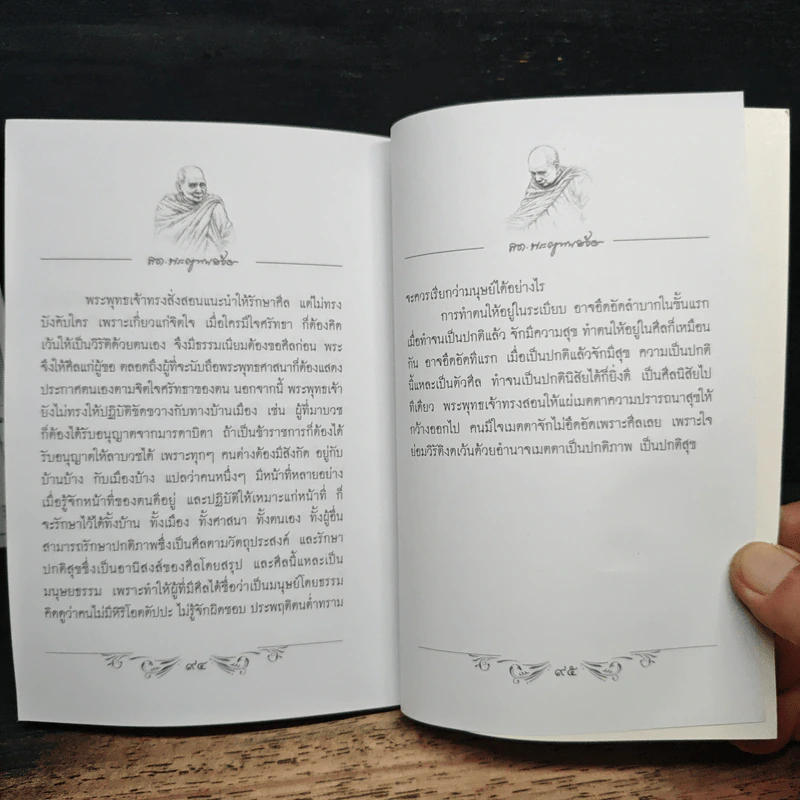 พระพุทธเจ้าทรงสั่งสอนแนะนำให้รักษาศีล แต่ไม่ทรง
บังคับใคร เพราะเกี่ยวแก่จิตใจ เมื่อใครมีใจศรัทธา ก็ต้องคิด
เว้นให้เป็นวิรัติด้วยตนเอง จึงมีธรรมเนียมต้องขอศีลก่อน พระ
จึงให้ศีลแก่ผู้ขอ ตลอดถึงผู้ที่จะนับถือพระพุทธศาสนาก็ต้องแสดง
ประกาศตนเองตามจิตใจศรัทธาของตน นอกจากนี้ พระพุทธเจ้า
ยังไม่ทรงให้ปฏิบัติขัดขวางกับทางบ้านเมือง เช่น ผู้ที่มาบวช
ก็ต้องได้รับอนุญาตจากมารดาบิดา ถ้าเป็นข้าราชการก็ต้องได้
รับอนุญาตให้ลาบวชได้ เพราะทุกๆ คนต่างต้องมีสังกัด อยู่กับ
บ้านบ้าง กับเมืองบ้าง แปลว่าคนหนึ่งๆ มีหน้าที่หลายอย่าง
เมื่อรู้จักหน้าที่ของตนดีอยู่ และปฏิบัติให้เหมาะแก่หน้าที่ ก็
จะรักษาไว้ได้ทั้งบ้าน ทั้งเมือง ทั้งศาสนา ทั้งตนเอง ทั้งผู้อื่น
สามารถรักษาปกติภาพซึ่งเป็นศีลตามวัตถุประสงค์ และรักษา
ปกติสุขซึ่งเป็นอานิสงส์ของศีลโดยสรุป และศีลนี้แหละเป็น
มนุษยธรรม เพราะทำให้ผู้ที่มีศีลได้ชื่อว่าเป็นมนุษย์โดยธรรม
คิดดูว่าคนไม่มีหิริโอตตัปปะ ไม่รู้จักผิดชอบ ประพฤติตนต่ำทราม
๙๔
จะควรเรียกว่ามนุษย์ได้อย่างไร
การทำตนให้อยู่ในระเบียบ อาจอึดอัดลำบากในชั้นแรก
เมื่อทำจนเป็นปกติแล้ว จักมีความสุข ทำตนให้อยู่ในศีลก็เหมือน
กัน อาจอึดอัดที่แรก เมื่อเป็นปกติแล้วจักมีสุข ความเป็นปกติ
นี้แหละเป็นตัวศีล ทำจนเป็นปกตินิสัยได้ก็ยิ่งดี เป็นศีลนิสัยไป
ทีเดียว พระพุทธเจ้าทรงสอนให้แผ่เมตตาความปรารถนาสุขให้
กว้างออกไป คนมีใจเมตตาจักไม่อึดอัดเพราะศีลเลย เพราะใจ
ย่อมวิรัติงดเว้นด้วยอำนาจเมตตาเป็นปกติภาพ เป็นปกติสุข
๙๕